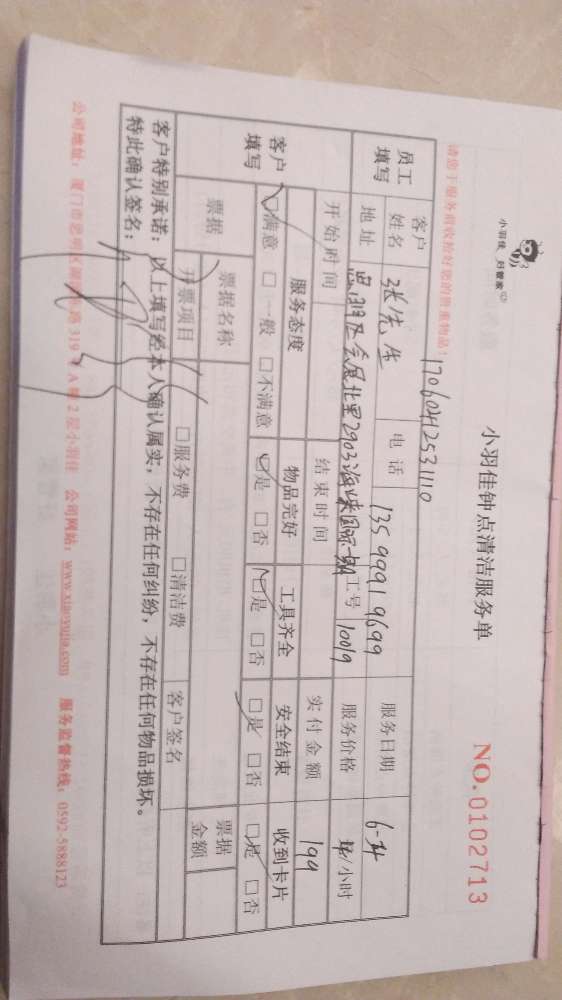 小羽佳 好管家
小羽佳钟点清洁服务单
NO.0102713
请您于服务前收拾好您的贵重物品!
1706041253110
员工填写
客户姓名 张先生 电话 13599919699 服务日期 6-14
地址 会展北里2903海峡国际 工号 10019 服务价格 /小时
开始时间 结束时间 实付金额 199
客户填写
服务态度 物品完好 工具齐全 安全结束 收到卡片
□满意 □一般 □不满意 □是 □否 □是 □否 □是 □否 □是 □否
票据 票据名称 □服务费 □清洁费 票据金额
开票项目 客户签名
客户特别承诺:以上填写经本人确认属实,不存在任何纠纷,不存在任何物品损坏。
特此确认签名:
公司地址:厦门市思明区 路319 A 2层小羽佳 公司网站:www.xiaoyujia.com 服务监督热线:0592-5888123